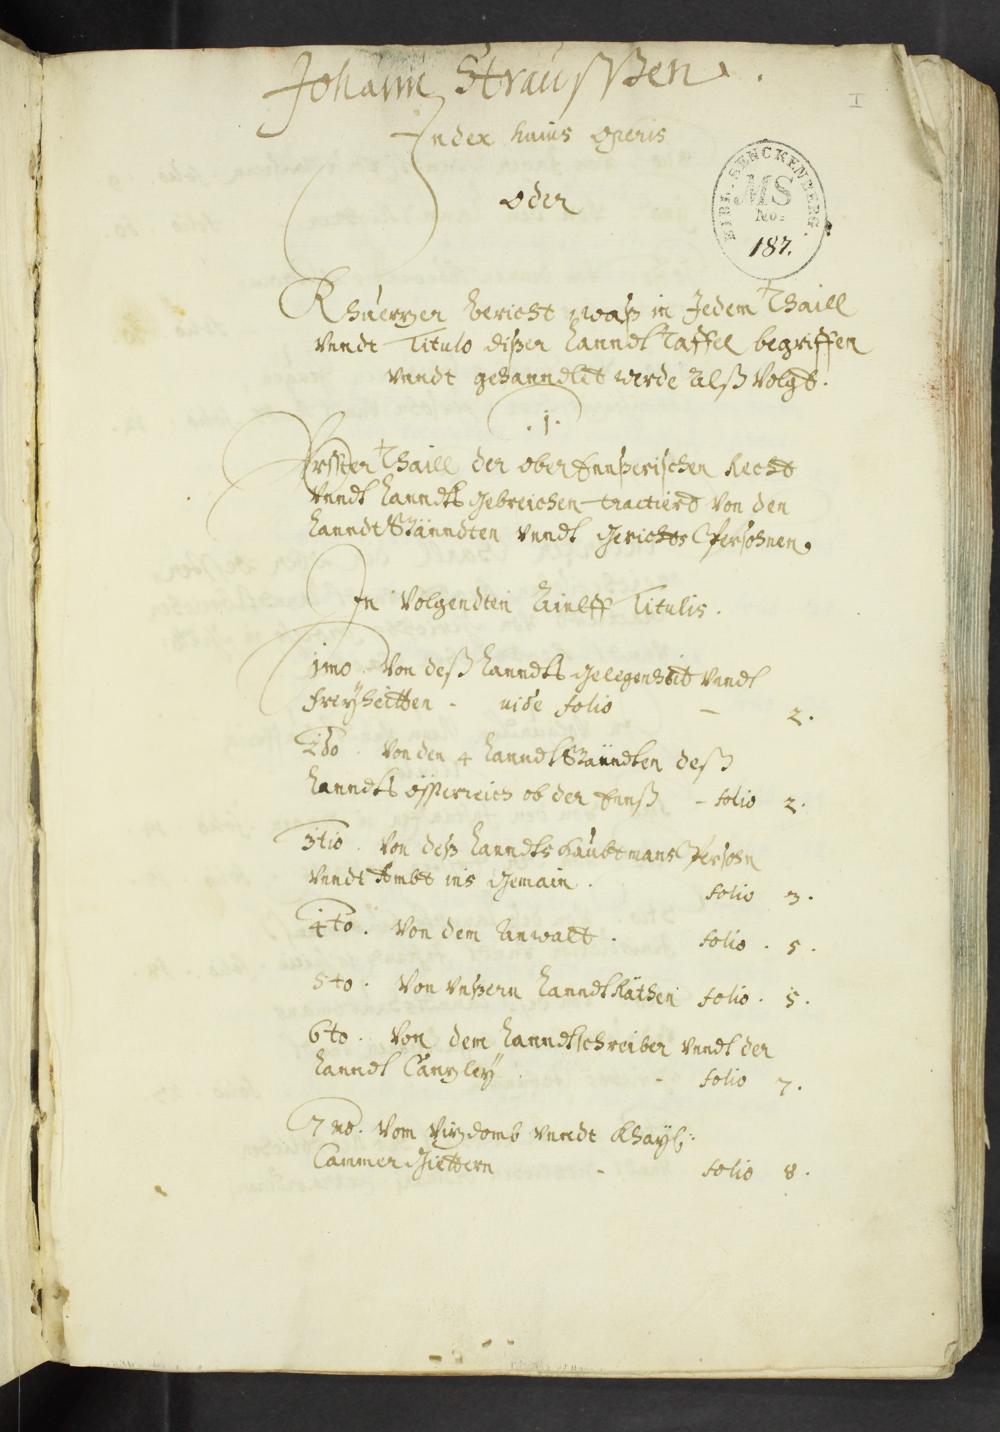 Johann Straussßen.
I
Index huius operis
oder
BIBL. SENCKENBERG.
MS
No:
187.
Khuerzer bericht waß in Jedem Thaill
vnndt Titulo dißer Lanndt Taffel begriffen
vnndt gehanndlet werde alß Volgt.
.1.
Erster Thaill der ober Ennßerischen Recht
vnndt Lanndts gebreichen tractiert von den
Lanndt Stänndten vnndt gerichts Persohnen.
In Volgendten Titulis.
1mo. Von deß Lanndts gelegenheit vnndt
Freyheitten - vide folio - 2.
2do. Von den 4 Lanndt Stänndten deß
Lanndts össterreich ob der Ennß - folio 2.
3tio. Von deß Lanndts haubtmans Persohn
vnndt Ambt ins gemain. folio 3.
4to. Von dem Anwalt. folio. 5.
5to. Von vnßern Lanndt Räthen folio. 5.
6to. Von dem Lanndtschreiber vnndt der
Lanndt Canzley - folio 7.
7mo. Vom Vizdomb vnndt Khayß:
Cammer Güettern - folio 8.